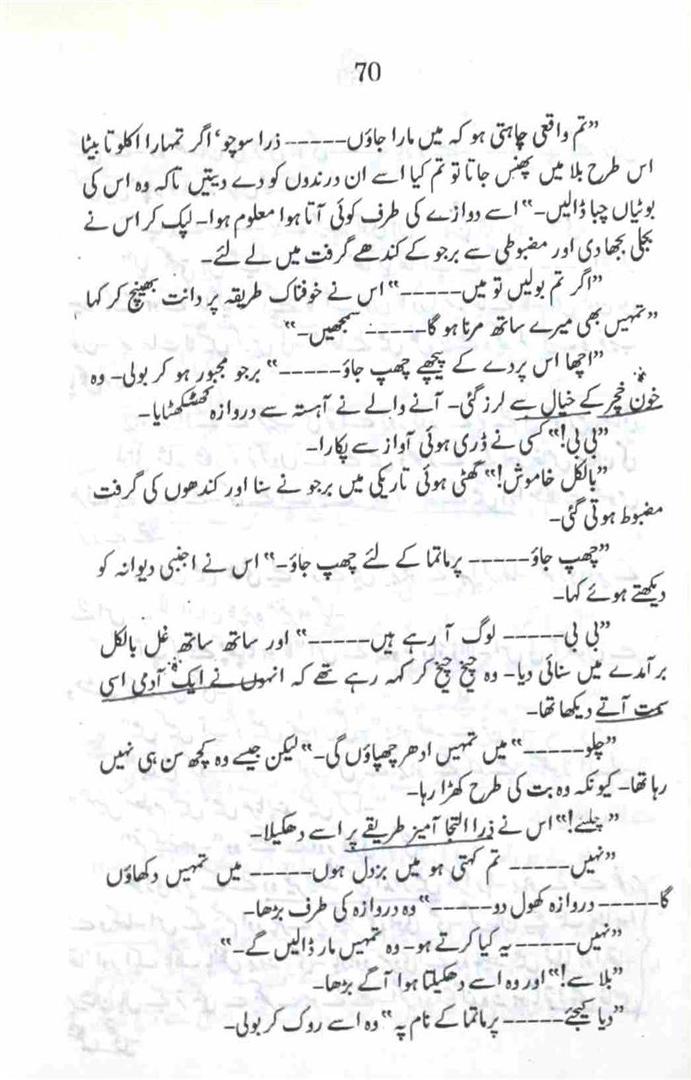 70
”تم واقعی چاہتی ہو کہ میں مارا جاؤں------ ذرا سوچو‘ اگر تمہارا اکلوتا بیٹا
اس طرح بلا میں پھنس جاتا تو تم کیا اسے ان درندوں کو دے دیتیں تاکہ وہ اس کی
بوٹیاں چبا ڈالیں۔“ اسے دوازے کی طرف کوئی آتا ہوا معلوم ہوا۔ لپک کر اس نے
بجلی بجھا دی اور مضبوطی سے برجو کے کندھے گرفت میں لے لئے۔
”اگر تم بولیں تو میں------“ اس نے خوفناک طریقہ پر دانت بھینچ کر کہا
”تمہیں بھی میرے ساتھ مرنا ہو گا------ سمجھیں۔“
”اچھا اس پردے کے پیچھے چھپ جاؤ------“ برجو مجبور ہو کر بولی۔ وہ
خون خچر کے خیال سے لرز گئی۔ آنے والے نے آہستہ سے دروازہ کھٹکھٹایا۔
”بی بی!“ کسی نے ڈری ہوئی آواز سے پکارا۔
”بالکل خاموش!“ گھٹی ہوئی تاریکی میں برجو نے سنا اور کندھوں کی گرفت
مضبوط ہوتی گئی۔
”چھپ جاؤ------ پرماتما کے لئے چھپ جاؤ۔“ اس نے اجنبی دیوانہ کو
دیکھتے ہوئے کہا۔
”بی بی------ لوگ آ رہے ہیں------“ اور ساتھ ساتھ غل بالکل
برآمدے میں سنائی دیا۔ وہ چیخ چیخ کر کہہ رہے تھے کہ انہوں نے ایک آدمی اسی
سمت آتے دیکھا تھا۔
”چلو------“ میں تمہیں ادھر چھپاؤں گی۔“ لیکن جیسے وہ کچھ سن ہی نہیں
رہا تھا۔ کیونکہ وہ بت کی طرح کھڑا رہا۔
”چلئے!“ اس نے ذرا التجا آمیز طریقے پر اسے دھکیلا۔
”نہیں------ تم کہتی ہو میں بزدل ہوں------ میں تمہیں دکھاؤں
گا------ دروازہ کھول دو------“ وہ دروازہ کی طرف بڑھا۔
”نہیں------ یہ کیا کرتے ہو۔ وہ تمہیں مار ڈالیں گے۔“
”بلا سے!“ اور وہ اسے دھکیلتا ہوا آگے بڑھا۔
”دیا کیجئے------ پرماتما کے نام پہ“ وہ اسے روک کر بولی۔